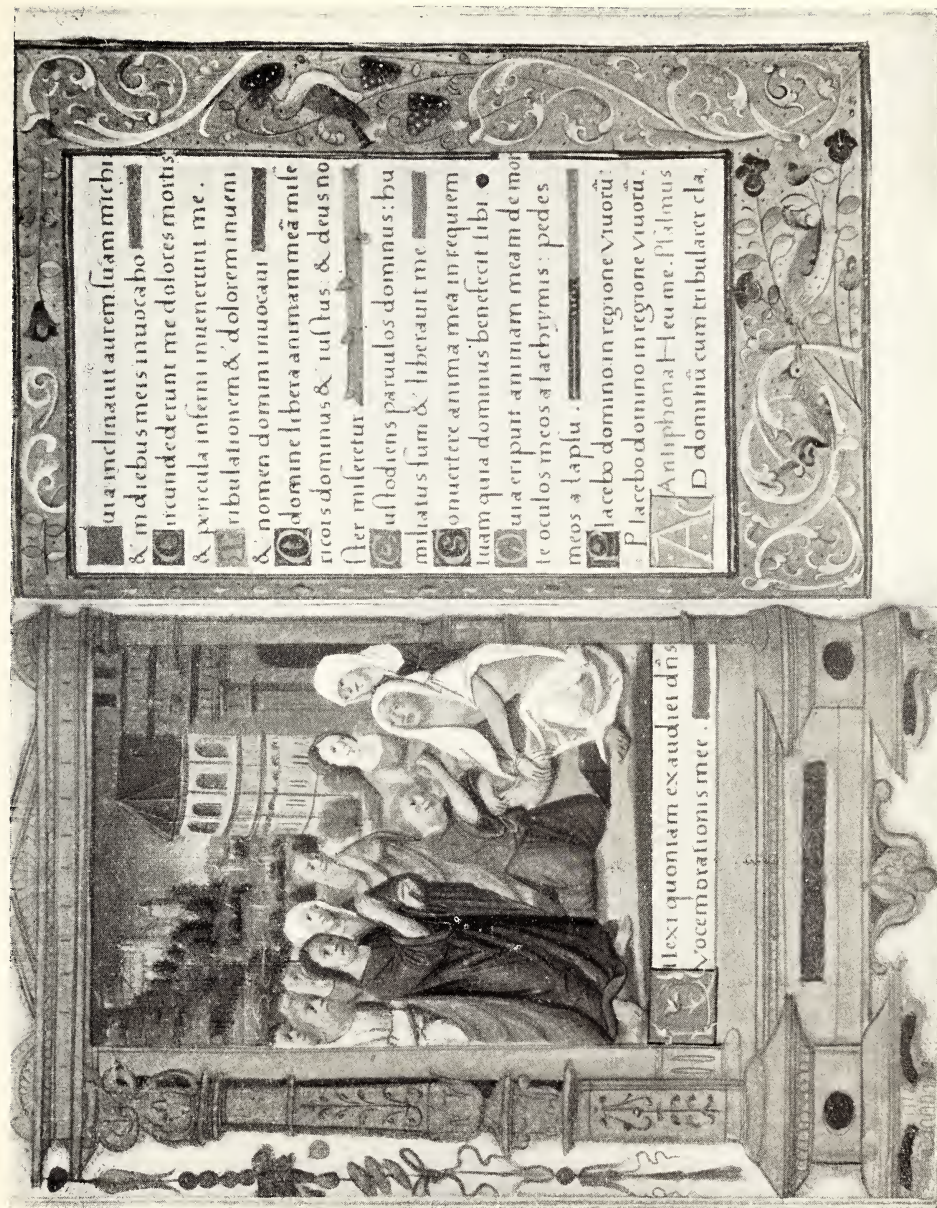 Dilexi quoniam exaudiet dn̄s
vocem orationis mee .
uia inclinauit aurem suam michi
& in diebus meis inuocabo
Circundederunt me dolores mortis
& pericula inferni inuenerunt me .
Tribulationem & dolorem inueni
& nomen domini inuocaui
O domine libera animam meā mise
ricors dominus & iustus : & deus no
ster miseretur
Custodiens paruulos dominus : hu
miliatus sum & liberauit me
Conuertere anima mea in requiem
tuam quia dominus benefecit tibi
Quia eripuit animam meam de mor
te oculos meos a lachrymis : pedes
meos a lapsu .
Placebo domino in regione viuorū :
Placebo domino in regione viuorū .
Antiphona Heu me . Psalmus
AD dominū cum tribularer cla,